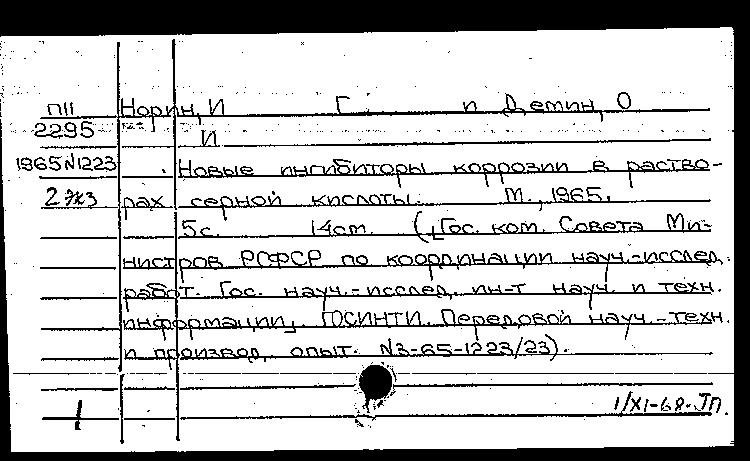 П11 Норин, И Г и Демин, О
2295 И
1965N1223 Новые ингибиторы коррозии в раство-
2 экз рах серной кислоты. М., 1965.
5с. 14cm. (Гос. ком. Совета Ми-
нистров РСФСР по координации науч.-исслед.
работ. Гос. науч.-исслед. ин-т науч. и техн.
информации, ГОСИНТИ. Передовой науч.-техн.
и производ. опыт. N3-65-1223/23).
1 1/XI-68-ЛП.